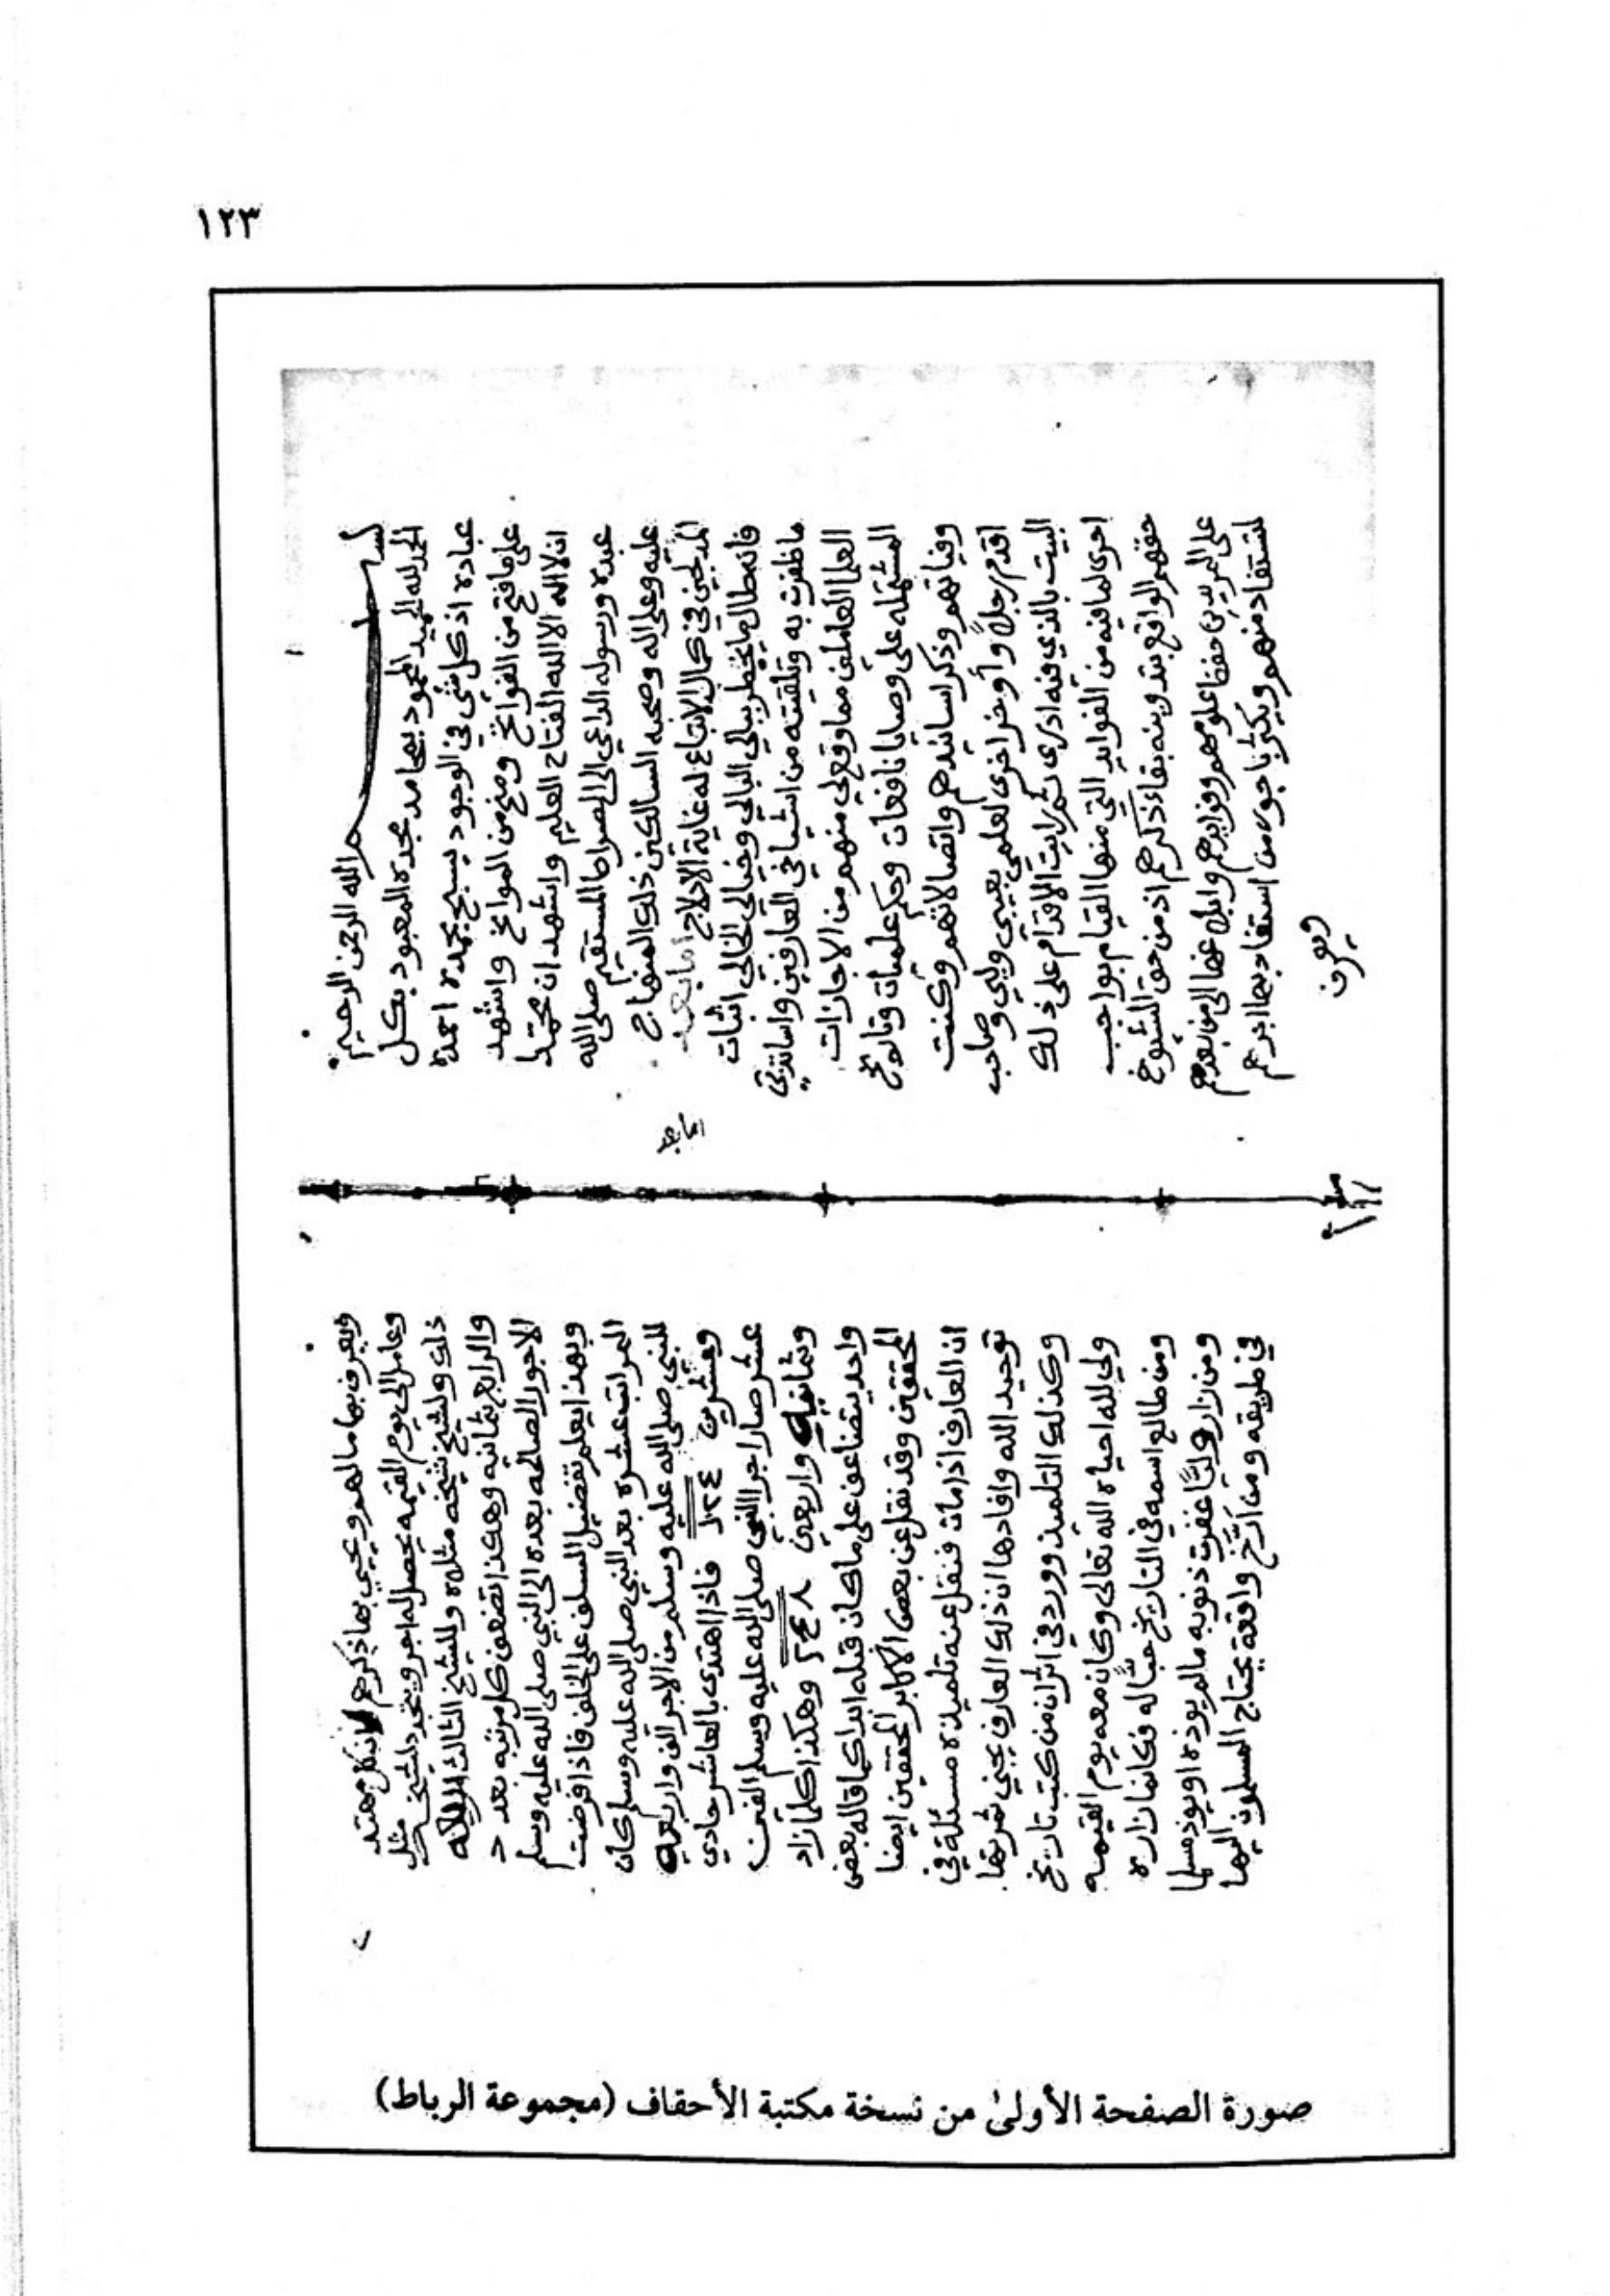 ١٢٣
بسم الله الرحمن الرحيم
الحمد لله الحميد المحمود بمحامد مجده المعبود بكل
عباده اذ كل شئ في الوجود يسبح بحمده احمده
على ما فتح من الفواتح ومنح من الموانح واشهد
ان لا اله الا الله الفتاح العليم واشهد ان محمدا
عبده ورسوله الداعي الى الصراط المستقيم صلى الله
عليه وعلى اله وصحبه السالكين ذلك المنهاج
المدلجين في كمال الاتباع له غاية الادلاج اما بعد
اما بعد
فانه طال ما يخطر ببالي البالي وخيالي الخالي اثبات
ما ظفرت به وتلقيته من اشياخي العارفين واساتذتي
العلما العاملين مما وقع لي منهم من الاجازات
المشتمله على وصايا نافعات وحكم علميات وتاريخ
وفياتهم وذكر اسانيدهم واتصالاتهم وكنت
اقدم رجلاً وأوخر اخرى لعلمي بعيبي وليي وصاحب
البيت بالذي فيه ادرى ثم رايت الاقدام على ذلك
احرى لما فيه من الفوايد التي منها القيام بواجب
حقهم الواقع بتدوينه بقاء ذكرهم اذ من حق الشيوخ
على المريدين حفظ علومهم وفوايدهم وابلاغها الى من بعدهم
لتستفاد منهم ويكثر باجور من استفاد بها اجرهم
ويعرف
ويعرف بها مالهم ويحيى بها ذكرهم لان كل مهتد
وعامل الى يوم القيمه يحصل له اجر ويتجدد لشيخه مثل
ذلك ولشيخ شيخه مثلاه وللشيخ الثالث اربعه
والرابع ثمانيه وهكذا تضعف كل مرتبه بعدد
الاجور الصالحه بعده الى النبي صلى الله عليه وسلم
وبهذا يعلم تفضيل السلف على الخلف فاذا فرضت
المراتب عشره بعد النبي صلى الله عليه وسلم كان
للنبي صلى الله عليه وسلم من الاجر الف واربعه
وعشرين ١٠٢٤ فاذا اهتدى بالعاشر حادي
عشر صار اجر النبي صلى الله عليه وسلم الفين
وثمانيه واربعين ٢٠٤٨ وهكذا كلما زاد
واحد يتضاعف على ما كان قبله ابدا كما قاله بعض
المحققين وقد نقل عن بعض الاكابر المحققين ايضا
ان العارف اذا مات فنقل عنه تلميذه مسئلة في
توحيد الله وافادها ان ذلك العارف يجني ثمرتها
وكذلك التلميذ وورد في اثران من كتب تاريخ
ولي لله احياه الله تعالى وكان معه يوم القيمه
ومن طالع اسمه في التاريخ حبًا له فكانما زاره
ومن زار وليًا غفرت ذنوبه مالم يوذه او يوذ مسلما
في طريقه ومن أرّخ واقعة يحتاج المسلمون اليها
صورة الصفحة الأولى من نسخة مكتبة الأحقاف (مجموعة الرباط)